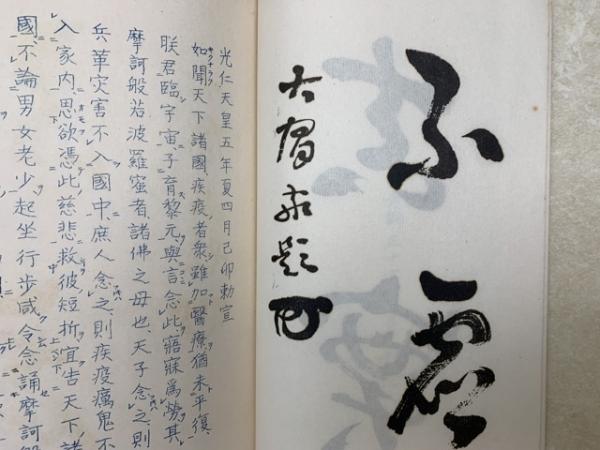 不虚
題
光仁天皇五年夏四月己卯勅宣
如聞天下諸國、疾疫者衆、雖加醫療、猶未平復、
朕君臨宇宙、子育黎元、與言念此、寤寐爲勞、其
摩訶般若波羅蜜者、諸佛之母也、天子念之、則
兵革灾害不入國中、庶人念之、則疾疫癘鬼不
入家内、思欲憑此慈悲、救彼短折、宜告天下諸
國、不論男女老少、起坐行步、咸令念誦摩訶般